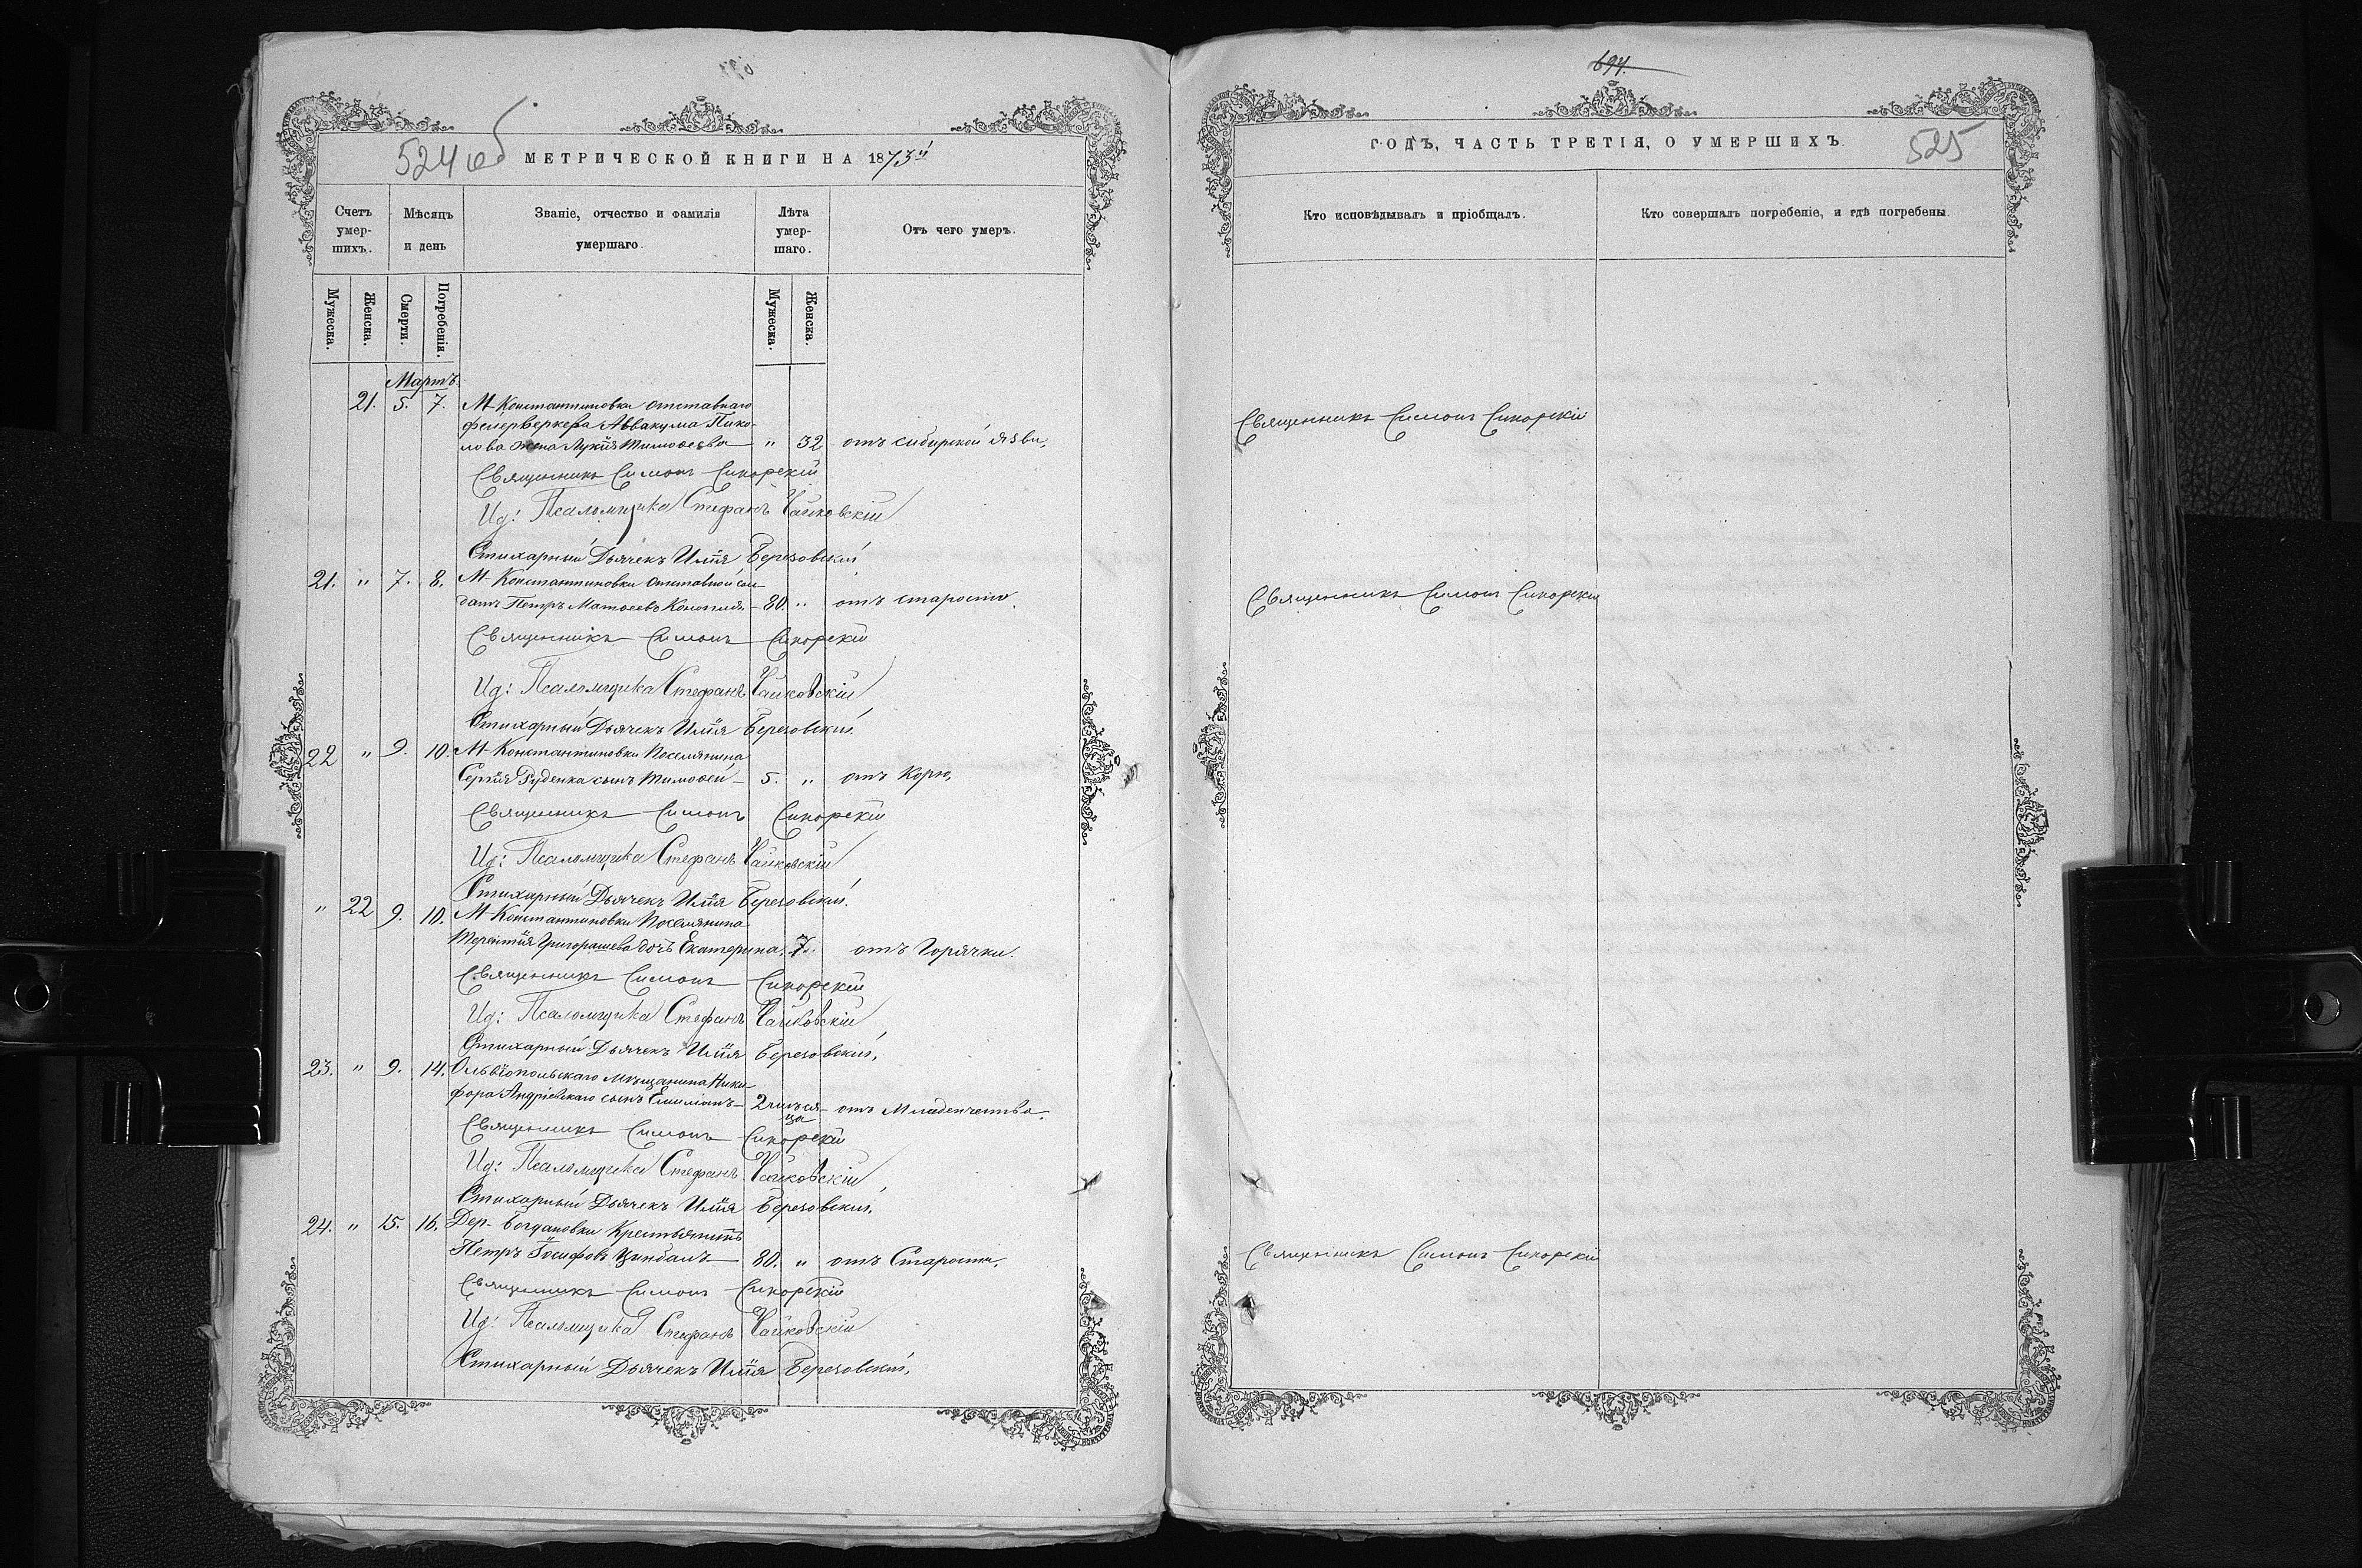 524 об
МЕТРИЧЕСКОЙ КНИГИ НА 1873й
Счетъ умер-шихъ.
Мѣсяцъ и день
Званіе, отчество и фамилія умершаго.
Лѣта умер-шаго.
Отъ чего умеръ.
Мужеска.
Женска.
Смерти.
Погребенія.
Мужеска.
Женска.
Мартъ
21. 5. 7. М. Константиновки отставнаго
фейерверкера Аввакума
жена Лукія Тимофеева " 32 отъ сибирской язвы.
Священникъ Симонъ Сикорскій
Ид: Псаломщика Стефанъ Чайковскій
Стихарный Дьячекъ Илія Березовскій
21. " 7. 8. М. Константиновки отставной сол-
датъ Петръ Матфеевъ Конопля 80. " отъ старости
Священникъ Симонъ Сикорскій
Ид: Псаломщика Стефанъ Чайковскій
Стихарный Дьячекъ Илія Березовскій.
22 " 9. 10. М. Константиновки Поселянина
Сергія Руденка сынъ Тимофей 5. " отъ Корю.
Священникъ Симонъ Сикорскій
Ид: Псаломщика Стефанъ Чайковскій
Стихарный Дьячекъ Илія Березовскій.
" 22 9. 10. М. Константиновки Поселянина
Терентія Григорашева дочь Екатерина. 7. отъ Горячки.
Священникъ Симонъ Сикорскій
Ид: Псаломщика Стефанъ Чайковскій
Стихарный Дьячекъ Илія Березовскій.
23. " 9. 14. Ольвіопольскаго мѣщанина Ники-
фора Андріевскаго сынъ Емиліанъ 2 мѣся-
ца отъ Младенчества.
Священникъ Симонъ Сикорскій
Ид: Псаломщика Стефанъ Чайковскій
Стихарный Дьячекъ Илія Березовскій.
24. " 15. 16. Дер. Богдановки Крестьянинъ
Петръ Іосифовъ Цимбалъ 80. " отъ Старости.
Священникъ Симонъ Сикорскій
Ид: Псаломщика Стефанъ Чайковскій
Стихарный Дьячекъ Илія Березовскій.
694.
ГОДЪ, ЧАСТЬ ТРЕТІЯ, О УМЕРШИХЪ.
525
Кто исповѣдывалъ и пріобщалъ.
Кто совершалъ погребеніе, и гдѣ погребены.
Священникъ Симонъ Сикорскій
Священникъ Симонъ Сикорскій
Священникъ Симонъ Сикорскій